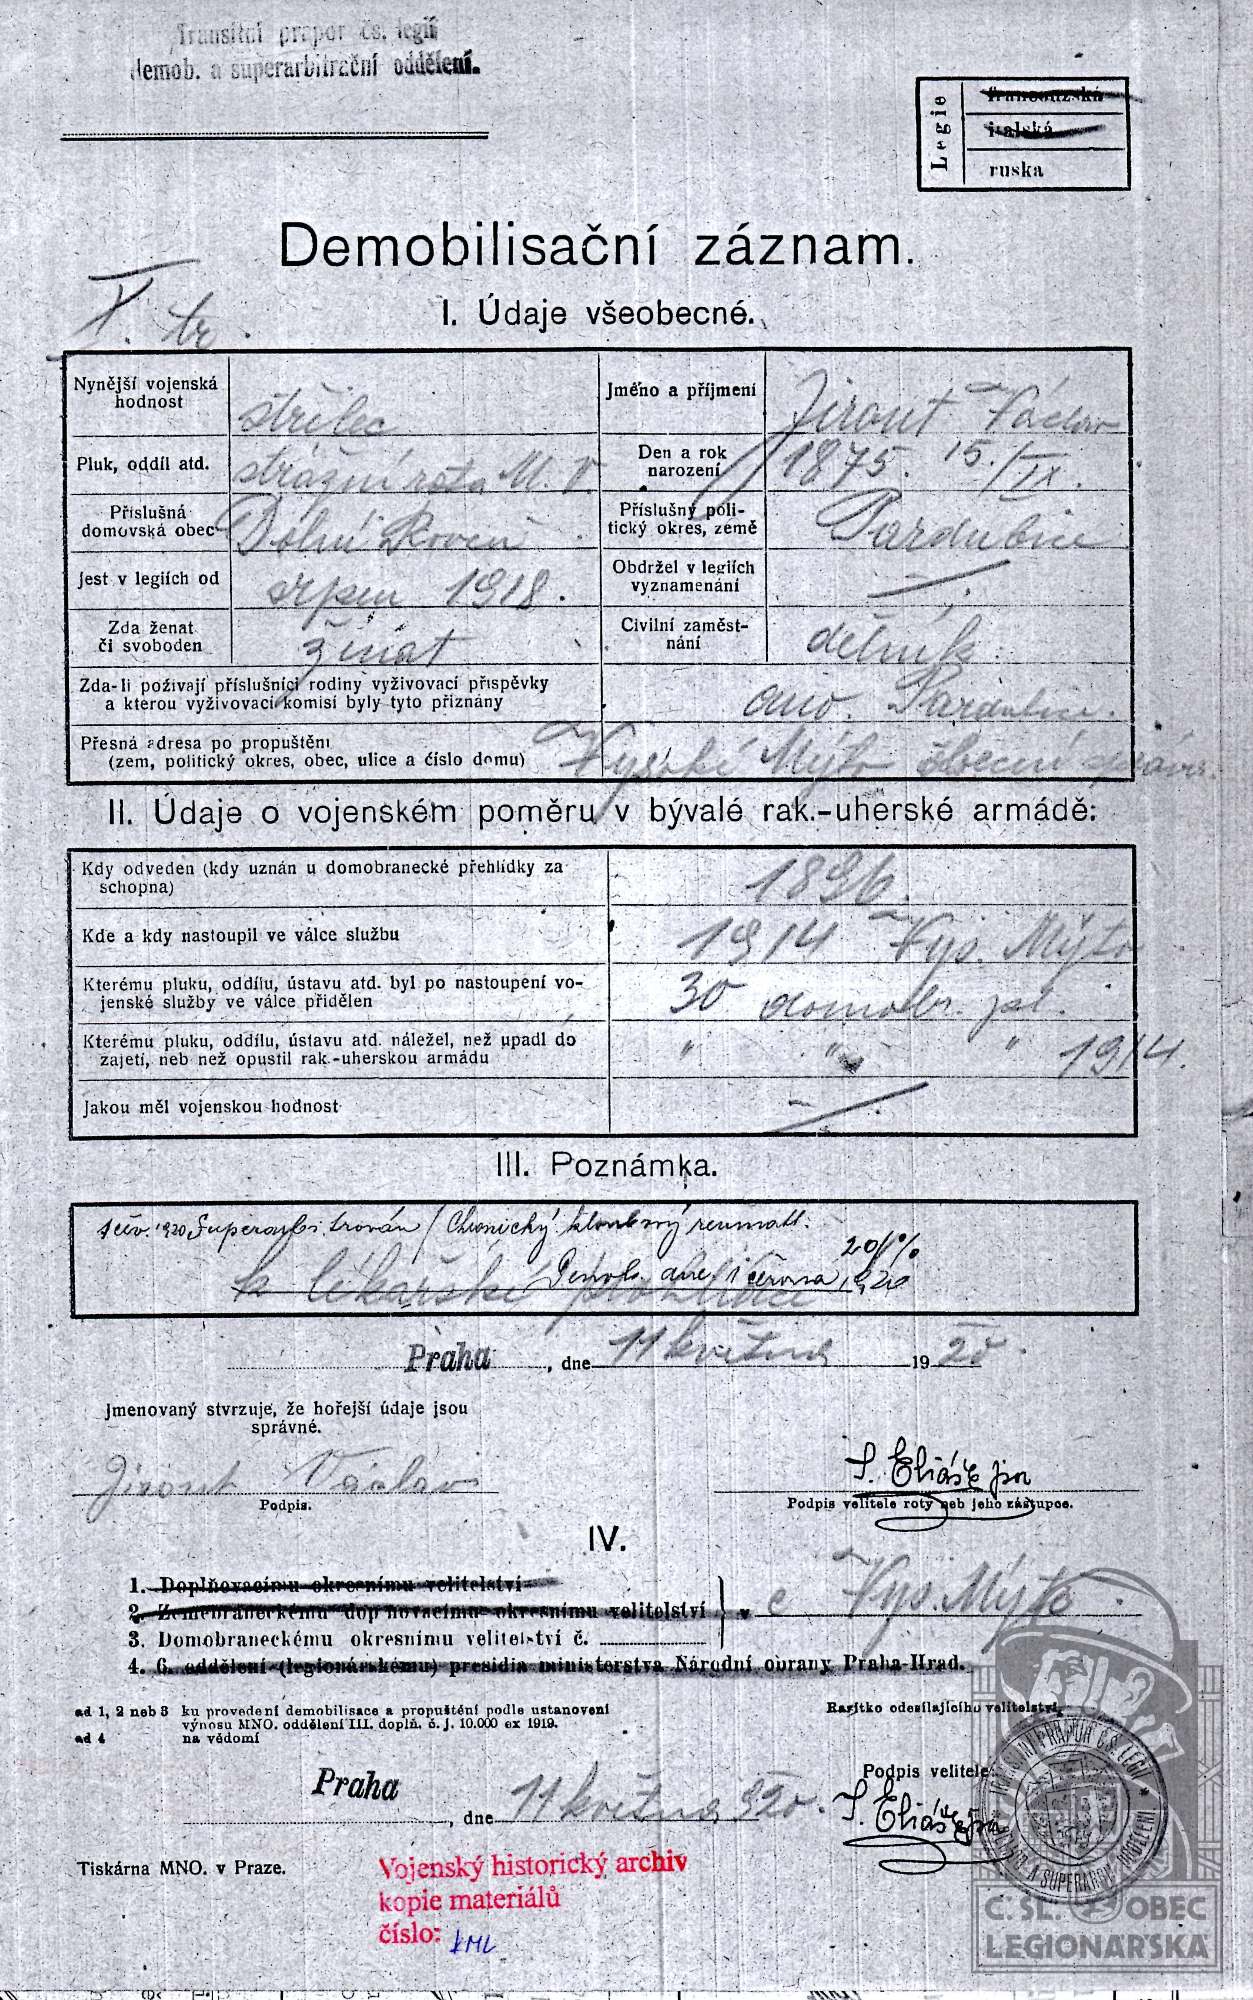 Transitní prapor čs. legií
demob. a superarbitrační oddělení.
Legie
francouzská
italská
ruska
Demobilisační záznam.
I. Údaje všeobecné.
Nynější vojenská hodnost
střelec
Jméno a příjmení
Jirout Václav
Pluk, oddíl atd.
strážní rota M. V.
Den a rok narození
1875. 15./IX.
Příslušná domovská obec
Dolní Roveň
Příslušný politický okres, země
Pardubice
Jest v legiích od
srpen 1918.
Obdržel v legiích vyznamenání
Zda ženat či svoboden
ženat
Civilní zaměstnání
dělník
Zda-li požívají příslušníci rodiny vyživovací příspěvky
a kterou vyživovací komisí byly tyto přiznány
ano. Pardubice.
Přesná adresa po propuštění
(zem, politický okres, obec, ulice a číslo domu)
Vysoké Mýto
II. Údaje o vojenském poměru v bývalé rak.-uherské armádě:
Kdy odveden (kdy uznán u domobranecké přehlídky za
schopna)
1896.
Kde a kdy nastoupil ve válce službu
1914 Vys. Mýto
Kterému pluku, oddílu, ústavu atd. byl po nastoupení vo-
jenské služby ve válce přidělen
30 domobr. pl.
Kterému pluku, oddílu, ústavu atd. náležel, než upadl do
zajetí, neb než opustil rak.-uherskou armádu
" " " 1914.
Jakou měl vojenskou hodnost
III. Poznámka.
1920 Superarbitrován / Chronický kloubový reumat.
20%
k lékařské prohlídce
1. června 1920
Praha, dne 11 května 1920.
Jmenovaný stvrzuje, že hořejší údaje jsou
správné.
Jirout Václav
Podpis.
Eliáš
Podpis velitele roty neb jeho zástupce.
IV.
1. Doplňovacímu okresnímu velitelství
2. Zeměbraneckému doplňovacímu okresnímu velitelství
v Vys. Mýto.
3. Domobraneckému okresnímu velitelství č.
4. 6. oddělení (legionářskému) presidia ministerstva Národní obrany Praha-Hrad.
ad 1, 2 neb 3 ku provedení demobilisace a propuštění podle ustanovení
výnosu MNO. oddělení III. doplň. č. j. 10.000 ex 1919.
ad 4 na vědomí
Razítko odesílajícího velitelství
Podpis velitele
Praha, dne 11 května 920.
Eliáš
Tiskárna MNO. v Praze.
Vojenský historický archiv
kopie materiálů
číslo:
Č. SL. OBEC
LEGIONÁŘSKÁ